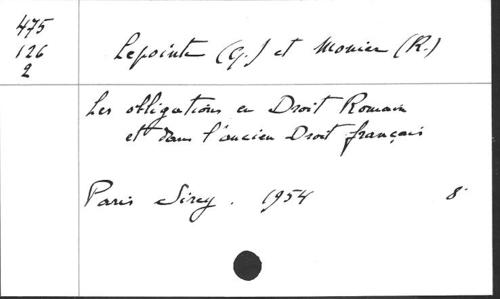 475
126
2
Lepointe (G.) et Monier (R.)
Les obligations en Droit Romain
et dans l'ancien Droit français
Paris Sirey. 1954 8°